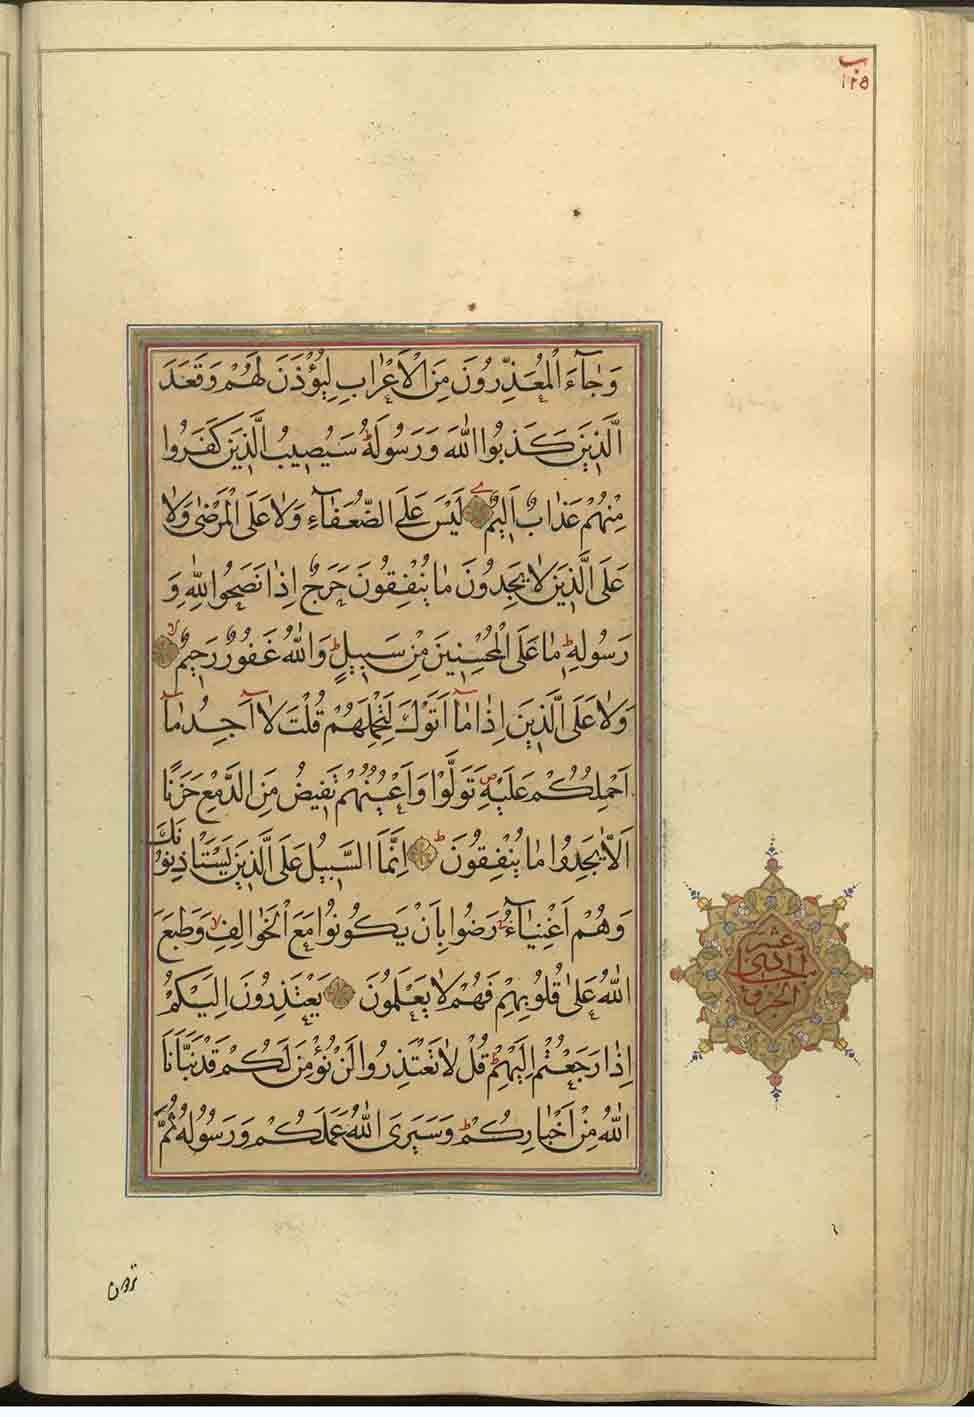 ب
١٢٥
وَجَآءَ الْمُعَذِّرُونَ مِنَ الْأَعْرَابِ لِيُؤْذَنَ لَهُمْ وَقَعَدَ
الَّذِينَ كَذَبُوا اللّٰهَ وَرَسُولَهُ ط سَيُصِيبُ الَّذِينَ كَفَرُوا
مِنْهُمْ عَذَابٌ اَلِيمٌ لَيْسَ عَلَى الضُّعَفَآءِ وَلَا عَلَى الْمَرْضٰى وَلَا
عَلَى الَّذِينَ لَا يَجِدُونَ مَا يُنْفِقُونَ حَرَجٌ اِذَا نَصَحُوا لِلّٰهِ وَ
رَسُولِهِ ط مَا عَلَى الْمُحْسِنِينَ مِنْ سَبِيلٍ ط وَاللّٰهُ غَفُورٌ رَحِيمٌ لا
وَلَا عَلَى الَّذِينَ اِذَا مَآ اَتَوْكَ لِتَحْمِلَهُمْ قُلْتَ لَآ اَجِدُ مَآ
اَحْمِلُكُمْ عَلَيْهِ ص تَوَلَّوْا وَاَعْيُنُهُمْ تَفِيضُ مِنَ الدَّمْعِ حَزَنًا
اَلَّا يَجِدُوا مَا يُنْفِقُونَ ط اِنَّمَا السَّبِيلُ عَلَى الَّذِينَ يَسْتَاْذِنُونَكَ
وَهُمْ اَغْنِيَآءُ رَضُوا بِاَنْ يَكُونُوا مَعَ الْخَوَالِفِ لا وَطَبَعَ
اللّٰهُ عَلٰى قُلُوبِهِمْ فَهُمْ لَا يَعْلَمُونَ يَعْتَذِرُونَ اِلَيْكُمْ
اِذَا رَجَعْتُمْ اِلَيْهِمْ ط قُلْ لَا تَعْتَذِرُوا لَنْ نُؤْمِنَ لَكُمْ قَدْ نَبَّاَنَا
اللّٰهُ مِنْ اَخْبَارِكُمْ ط وَسَيَرَى اللّٰهُ عَمَلَكُمْ وَرَسُولُهُ ثُمَّ
عشر
الجزو
تردون